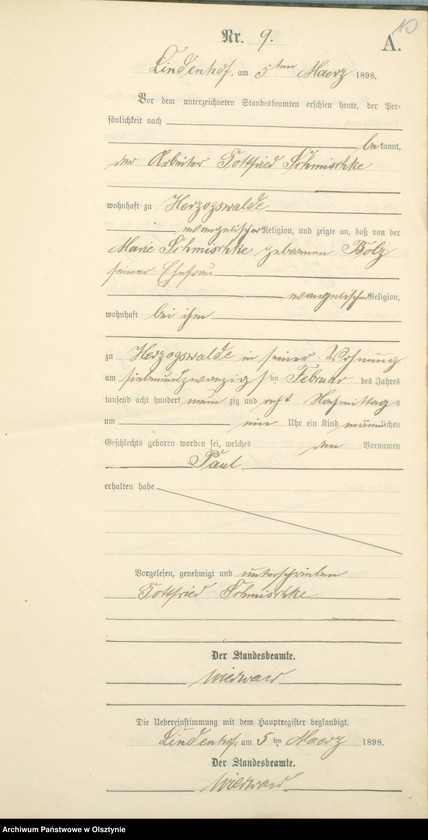 10
Nr. 9.
A.
Lindenhof am 5ten Maerz 1898.
Vor dem unterzeichneten Standesbeamten erschien heute, der Per-
sönlichkeit nach
bekannt,
der Arbeiter Gottfried Schmischke
wohnhaft zu Herzogswalde
evangelischer Religion, und zeigte an, daß von der
Marie Schmischke geborenen Bolz
seiner Ehefrau
evangelischer Religion,
wohnhaft bei ihm
zu Herzogswalde in seiner Wohnung
am siebenundzwanzigsten Februar des Jahres
tausend acht hundert neunzig und acht Nachmittags
um Uhr ein Kind männlichen
Geschlechts geboren worden sei, welches den Vornamen
Paul
erhalten habe
Vorgelesen, genehmigt und unterschrieben
Gottfried Schmischke
Der Standesbeamte.
Die Uebereinstimmung mit dem Hauptregister beglaubigt.
Lindenhof am 5ten Maerz 1898.
Der Standesbeamte.
Archiwum Państwowe w Olsztynie